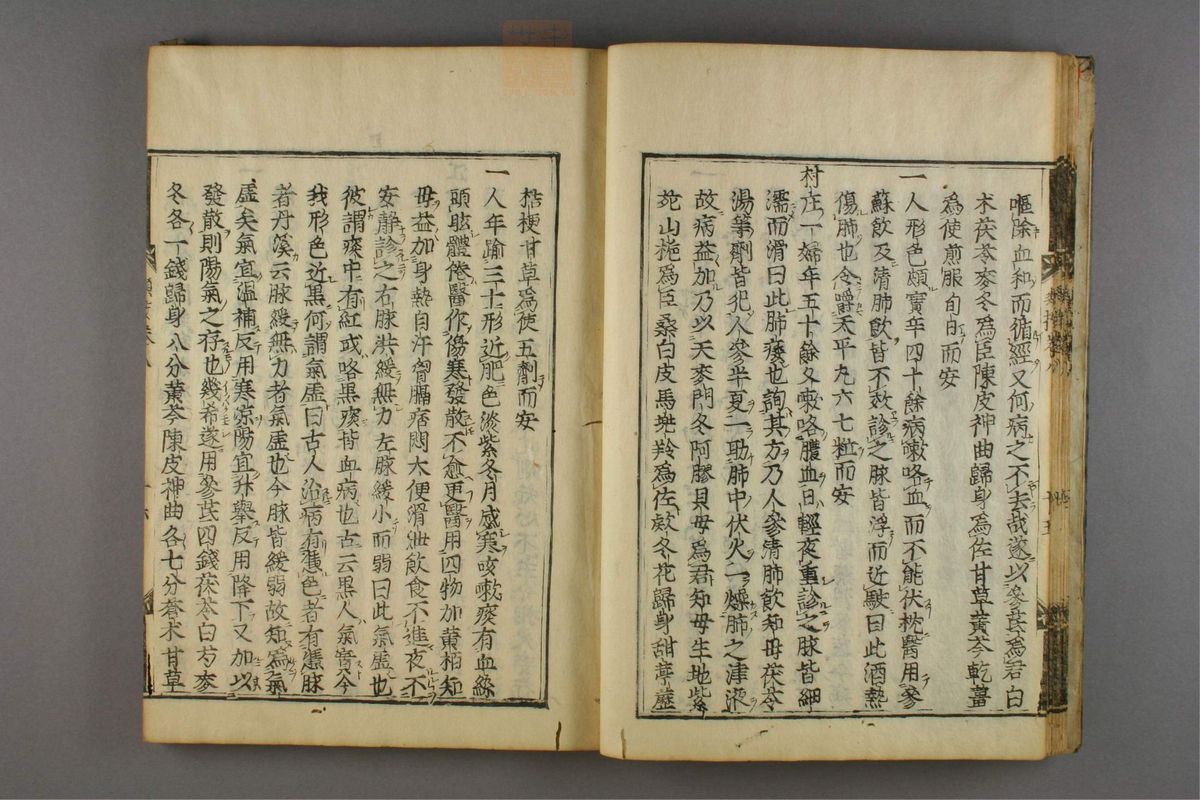 嘔除血和而循經又何病之不去哉遂以參芪為君白
术茯苓麥冬為臣陳皮神曲歸身為佐甘草黃芩乾薑
為使煎服旬日而安
一人形色頗實年四十餘病嗽咯血而不能伏枕醫用參
蘇飲及清肺飲皆不效診之脉皆浮而近駛曰此酒熱
傷肺也令嚼太平丸六七粒而安
村庄一婦年五十餘久嗽咯膿血日輕夜重診之脉皆細
濡而滑曰此肺痿也詢其方乃人參清肺飲知母茯苓
湯等劑皆犯人參半夏一助肺中伏火一燥肺之津液
故病益加乃以天麥門冬阿膠貝母為君知母生地紫
菀山梔為臣桑白皮馬兜鈴為佐款冬花歸身甜葶藶
桔梗甘草為使五劑而安
一人年踰三十形近肥色淡紫冬月感寒咳嗽痰有血絲
頭眩體倦醫作傷寒發散不愈更醫用四物加黃栢知
母益加身熱自汗胷膈痞悶大便滑泄飲食不進夜不
安靜診之右脉洪緩無力左脉緩小而弱曰此氣虛也
彼謂痰中有紅或咯黑痰皆血病也古云黑人氣實今
我形色近黑何謂氣虛曰古人治病有憑色者有憑脉
者丹溪云脉緩無力者氣虛也今脉皆緩弱故知為氣
虛矣氣宜溫補反用寒涼陽宜升舉反用降下又加以
發散則陽氣之存也幾希遂用參芪四錢茯苓白芍麥
冬各一錢歸身八分黃芩陳皮神曲各七分蒼术甘草